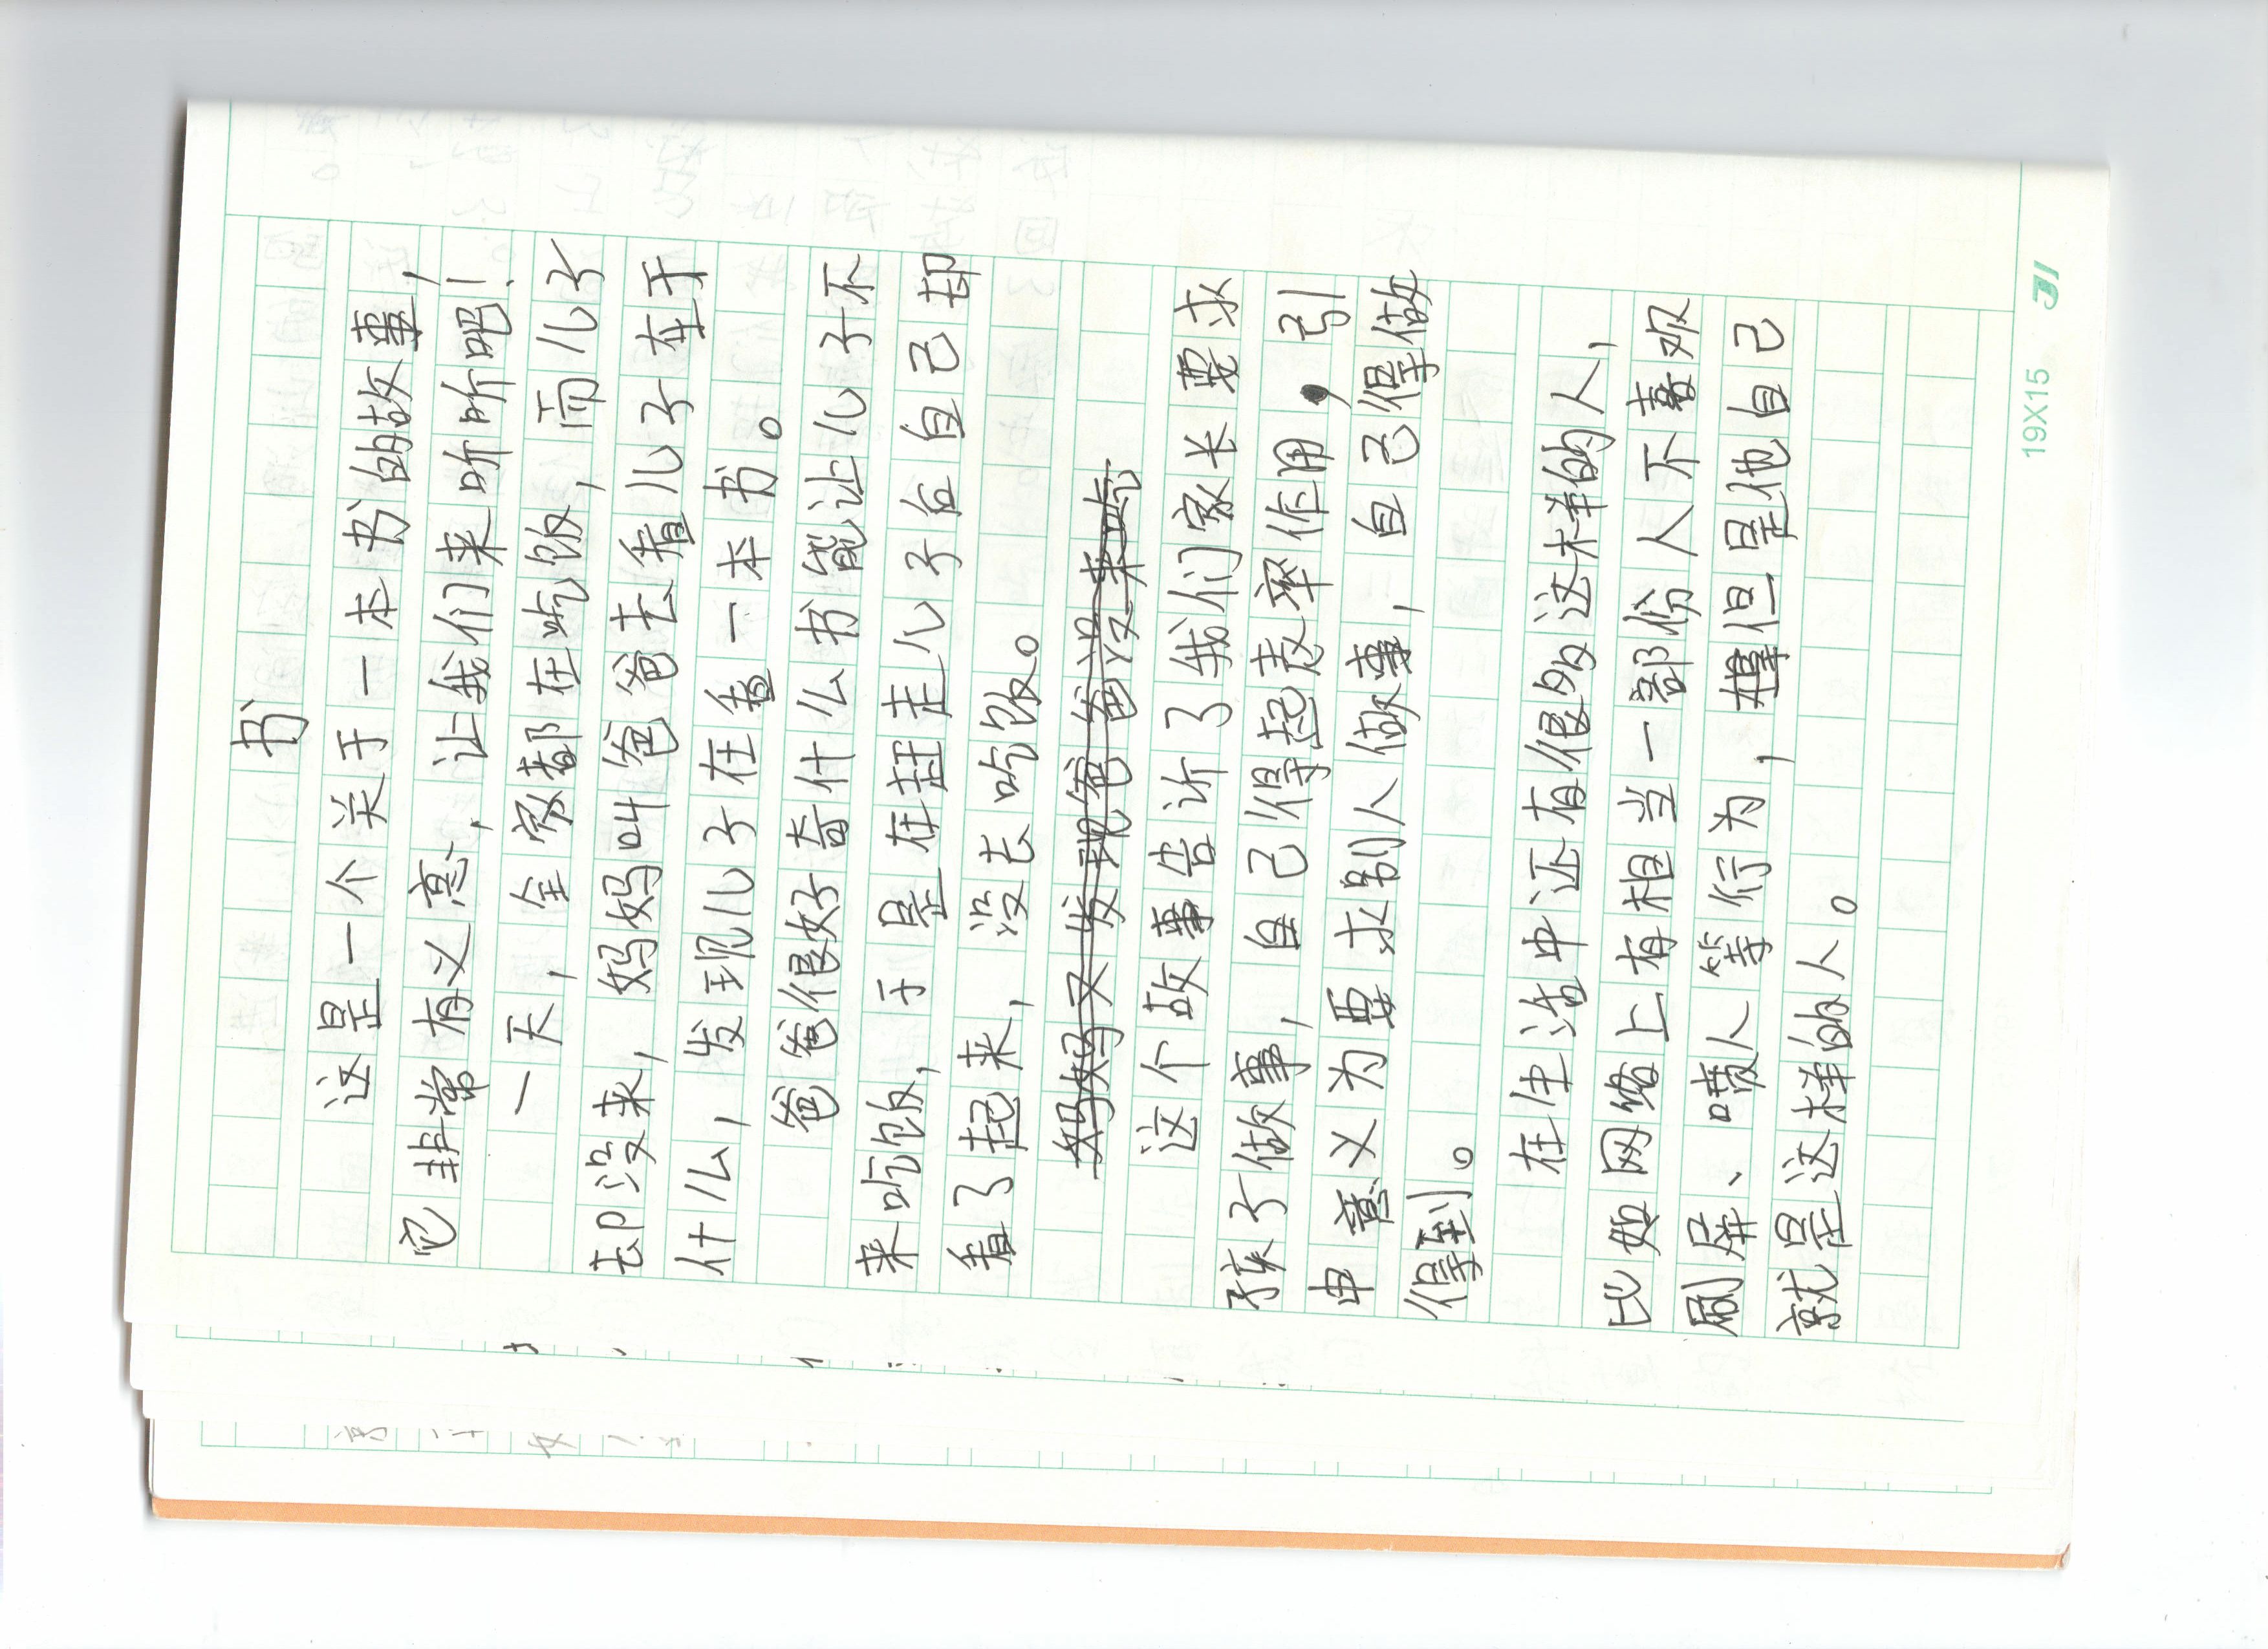 书
这是一个关于一本书的故事，
它非常有义意，让我们来听听吧！
一天，全家都在吃饭，而儿子
却没来，妈妈叫爸爸去看儿子在干
什么，发现儿子在看一本书。
爸爸很好奇什么书能让儿子不
来吃饭，于是在赶走儿子后自己却
看了起来，没去吃饭。
妈妈又发现爸爸没来吃
这个故事告诉了我们家长要求
孩子做事，自己得起表率作用，引
申意义为要求别人做事，自己得做
得到。
在生活中还有很多这样的人，
比如网络上有相当一部份人不喜欢
刷屏、喷人等行为，但是他自己
就是这样的人。
19X15